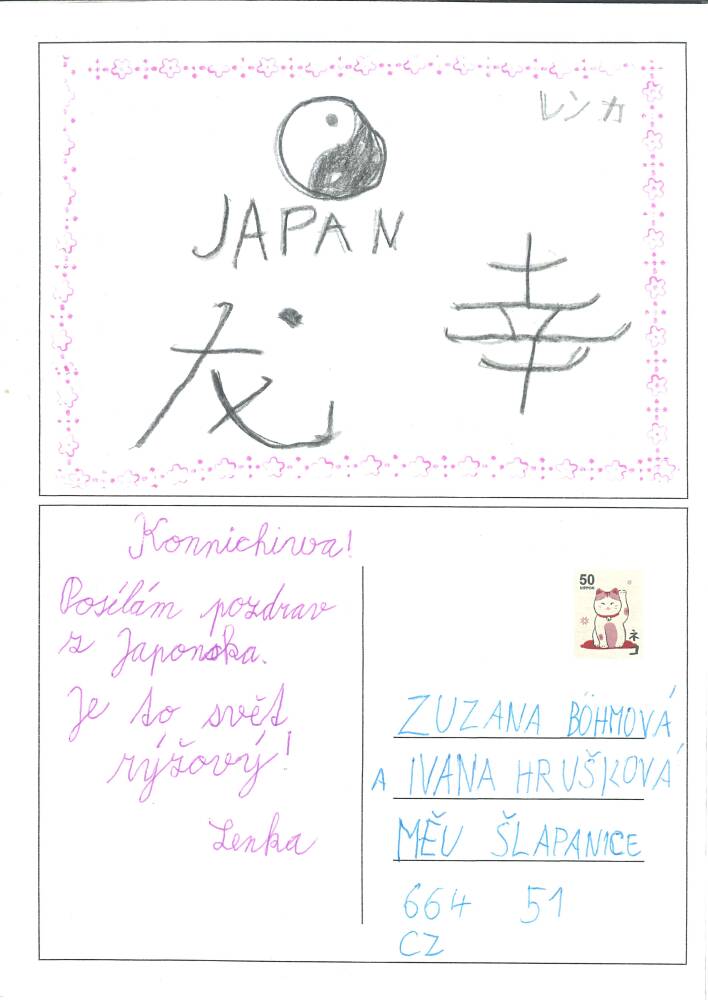 レンカ
JAPAN
龙 幸
Konnichiwa!
Posílám pozdrav
z Japonska.
Je to svět
rýžový!
Lenka
50
NIPPON
ネコ
ZUZANA BÖHMOVÁ
A IVANA HRUŠKOVÁ
MĚÚ ŠLAPANICE
664 51
CZ